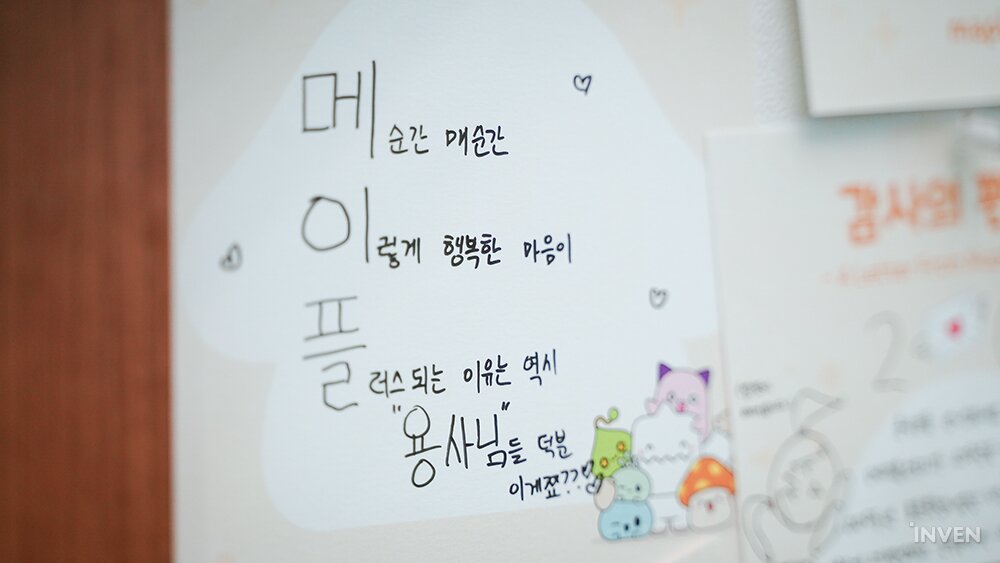 메순간 매순간
이렇게 행복한 마음이
플러스 되는 이유는 역시
"용사님"들 덕분
이게쬬??
감사의
INVEN